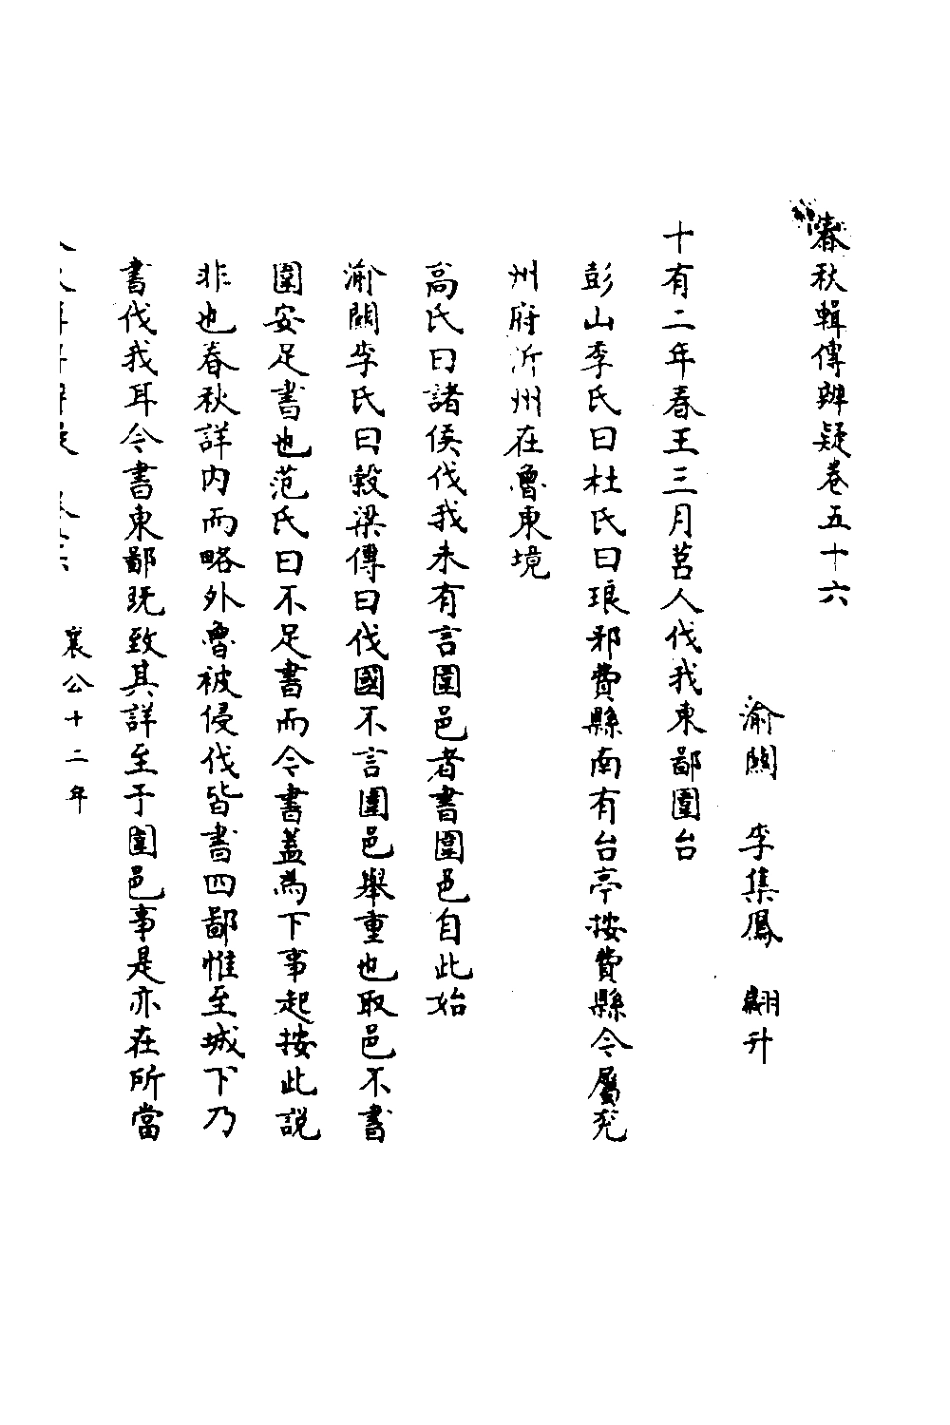 春秋輯傳辨疑卷五十六
渝關 李集鳳 翽升
十有二年春王三月莒人伐我東鄙圍台
彭山季氏曰杜氏曰琅邪費縣南有台亭按費縣今屬兗
州府沂州在魯東境
高氏曰諸侯伐我未有言圍邑者書圍邑自此始
渝關李氏曰穀梁傳曰伐國不言圍邑舉重也取邑不書
圍安足書也范氏曰不足書而今書蓋為下事起按此説
非也春秋詳內而略外魯被侵伐皆書四鄙惟至城下乃
書伐我耳今書東鄙既致其詳至于圍邑事是亦在所當
襄公十二年